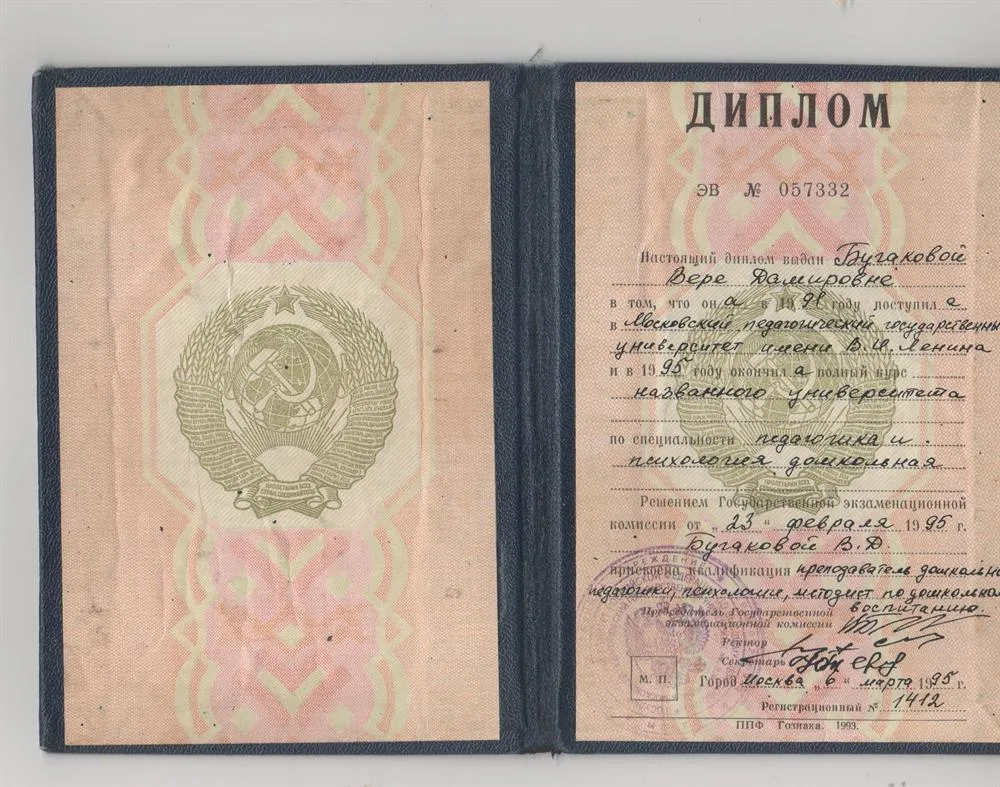 ПРОЛЕТАРИИ ВСЕХ
СТРАН, СОЕДИНЯЙТЕСЬ!
ДИПЛОМ
ЭВ № 057332
Настоящий диплом выдан Бугаковой
Вере Дамировне
в том, что он а в 1991 году поступил а
в Московский педагогический государственны
университет имени В.И. Ленина
и в 1995 году окончил а полный курс
названного университета
по специальности педагогика и
психология дошкольная
Решением Государственной экзаменационной
комиссии от „23“ февраля 1995 г.
Бугаковой В.Д.
присвоена квалификация преподаватель дошкольно
педагогики, психологии, методист по дошкольно
воспитанию.
Председатель Государственной
экзаменационной комиссии
Ректор
Секретарь
М. П.
Город Москва „6“ марта 1995 г.
Регистрационный № 1412
ППФ Гознака. 1993.